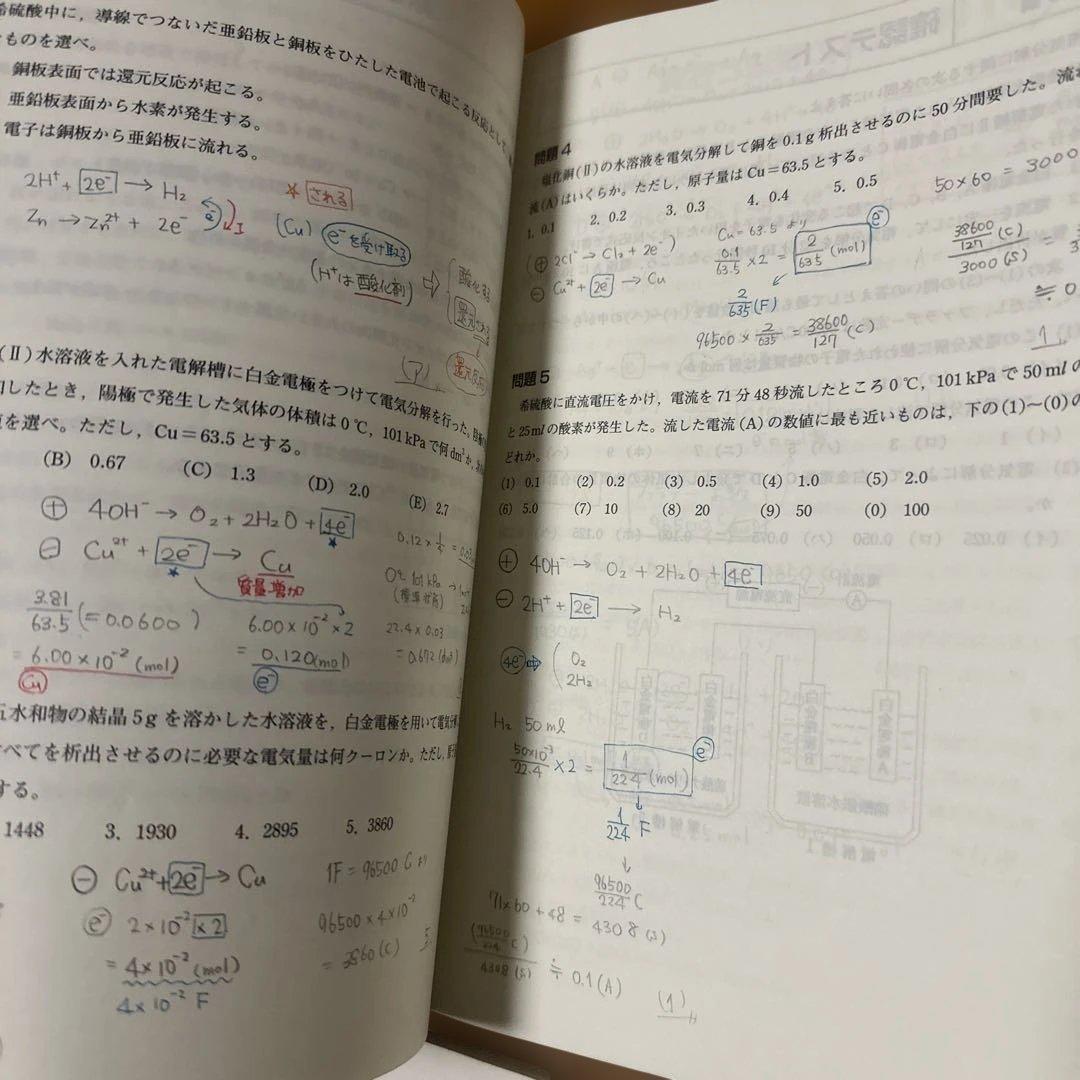 希硫酸中に，導線でつないだ亜鉛板と銅板をひたした電池で起こる反応として，
ものを選べ。
銅板表面では還元反応が起こる。
亜鉛板表面から水素が発生する。
電子は銅板から亜鉛板に流れる。
2H⁺ + 2e⁻ → H₂
Zn → Zn²⁺ + 2e⁻
e⁻ I
★される
(Cu) e⁻を受け取る
(H⁺は酸化剤) ⇨
酸化する
還元される
還元反応
(ア)
(Ⅱ)水溶液を入れた電解槽に白金電極をつけて電気分解を行った。
したとき，陽極で発生した気体の体積は0℃，101kPaで何dm³か。
を選べ。ただし，Cu=63.5とする。
(B) 0.67 (C) 1.3 (D) 2.0 (E) 2.7
⊕ 4OH⁻ → O₂ + 2H₂O + 4e⁻
⊖ Cu²⁺ + 2e⁻ → Cu
質量増加
3.81/63.5 (= 0.0600)
= 6.00×10⁻² (mol)
Cu
6.00×10⁻²×2
= 0.120 (mol)
e⁻
0.12×1/4 = 0.03
0℃ 101kPa
(標準状態)
22.4×0.03
= 0.672 (dm³)
五水和物の結晶5gを溶かした水溶液を，白金電極を用いて電気分解
すべてを析出させるのに必要な電気量は何クーロンか。ただし，
する。
1448 3. 1930 4. 2895 5. 3860
⊖ Cu²⁺ + 2e⁻ → Cu
e⁻ 2×10⁻² ×2
= 4×10⁻² (mol)
4×10⁻² F
1F = 96500 C より
96500×4×10⁻²
= 3860 (C)
5
確認テスト
問題4
塩化銅(Ⅱ)の水溶液を電気分解して銅を0.1g析出させるのに50分間要した。流れ
流(A)はいくらか。ただし，原子量はCu=63.5とする。
1. 0.1 2. 0.2 3. 0.3 4. 0.4 5. 0.5
⊕ 2Cl⁻ → Cl₂ + 2e⁻
⊖ Cu²⁺ + 2e⁻ → Cu
Cu = 63.5 より
0.1/63.5 × 2 = 2/635 (mol)
e⁻
2/635 (F)
96500 × 2/635 = 38600/127 (C)
50×60 = 3000
38600/127 (C) / 3000 (S) =
≒ 0
1
問題5
希硫酸に直流電圧をかけ，電流を71分48秒流したところ0℃，101kPaで50mlの
と25mlの酸素が発生した。流した電流(A)の数値に最も近いものは，下の(1)～(0)の
どれか。
(1) 0.1 (2) 0.2 (3) 0.5 (4) 1.0 (5) 2.0
(6) 5.0 (7) 10 (8) 20 (9) 50 (0) 100
⊕ 4OH⁻ → O₂ + 2H₂O + 4e⁻
⊖ 2H⁺ + 2e⁻ → H₂
4e⁻ ⇨ O₂
2H₂
H₂ 50 ml
50×10⁻³/22.4 × 2 = 1/224 (mol)
e⁻
1/224 F
↓
96500/224 C
71×60+48 = 4308 (S)
(96500/224 C) / 4308 (S) ≒ 0.1 (A)
(1)